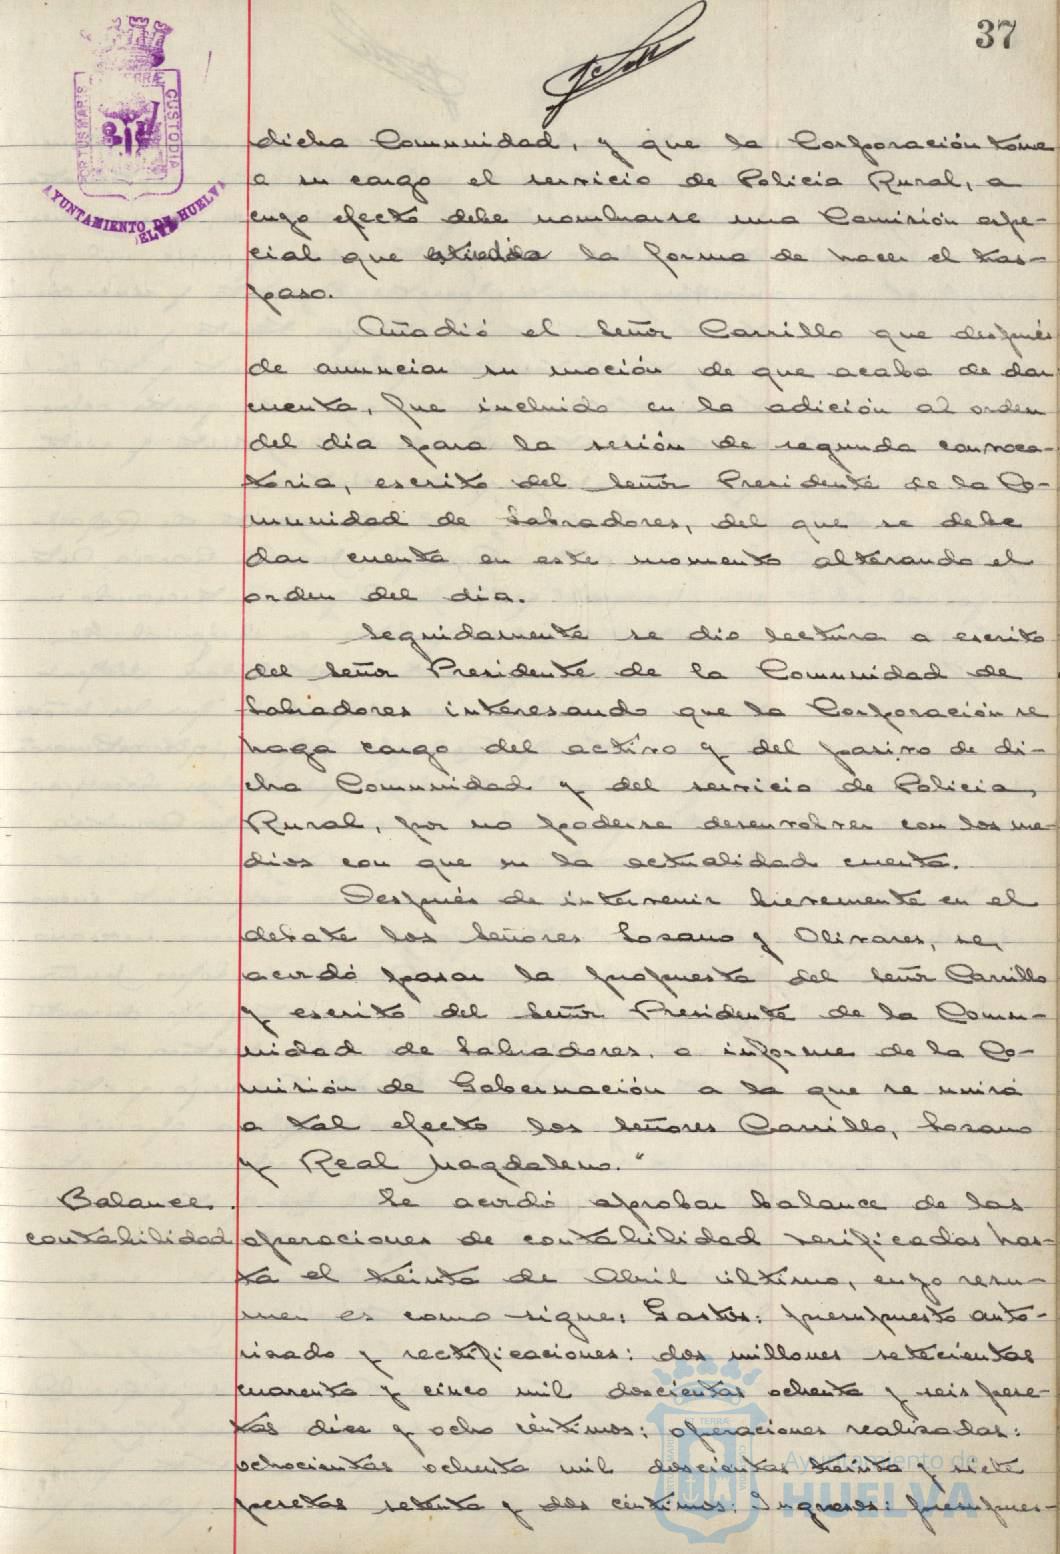 37
PORTUS MARIS
TERRÆ
CUSTODIA
AYUNTAMIENTO DE HUELVA
dicha Comunidad, y que la Corporación tome
a su cargo el servicio de Policia Rural, a
cuyo efecto debe nombrarse una Comisión espe-
cial que estudie la forma de hacer el tras-
paso.
Añadió el Señor Carrillo que después
de anunciar su moción de que acaba de dar
cuenta, fue incluido en la adición al orden
del dia para la sesión de segunda convoca-
toria, escrito del Señor Presidente de la Co-
munidad de Labradores, del que se debe
dar cuenta en este momento alterando el
orden del dia.
Seguidamente se dio lectura a escrito
del Señor Presidente de la Comunidad de
Labradores interesando que la Corporación se
haga cargo del activo y del pasivo de di-
cha Comunidad y del servicio de Policia
Rural, por no poderse desenvolver con los me-
dios con que en la actualidad cuenta.
Después de intervenir brevemente en el
debate los Señores Lozano y Olivares, se
acordó pasar la propuesta del Señor Carrillo
y escrito del Señor Presidente de la Comu-
nidad de Labradores, a informe de la Co-
misión de Gobernación a la que se unirá
a tal efecto los Señores Carrillo, Lozano
y Real Magdaleno."
Balance
contabilidad
Se acordó aprobar balance de las
operaciones de contabilidad verificadas has-
ta el treinta de Abril último, cuyo resu-
men es como sigue: Gastos: presupuesto auto-
rizado y rectificaciones: dos millones setecientas
cuarenta y cinco mil doscientas ochenta y seis pese-
tas diez y ocho céntimos; operaciones realizadas:
ochocientas ochenta mil doscientas treinta y siete
pesetas setenta y dos céntimos: Ingresos: presupues-
Ayuntamiento de
HUELVA